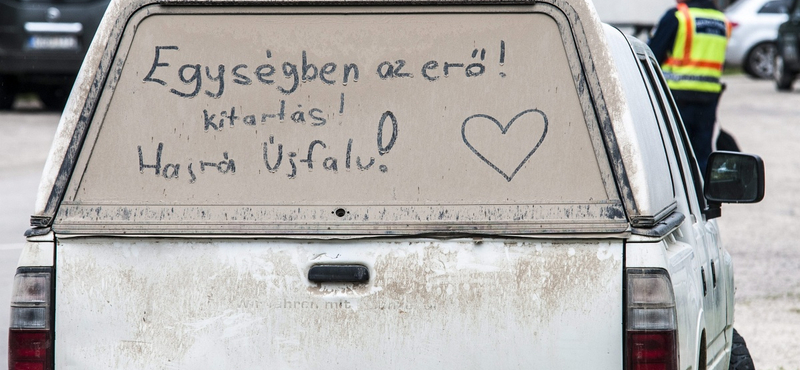 Egységben az erő!
kitartás!
Hajrá Újfalu!